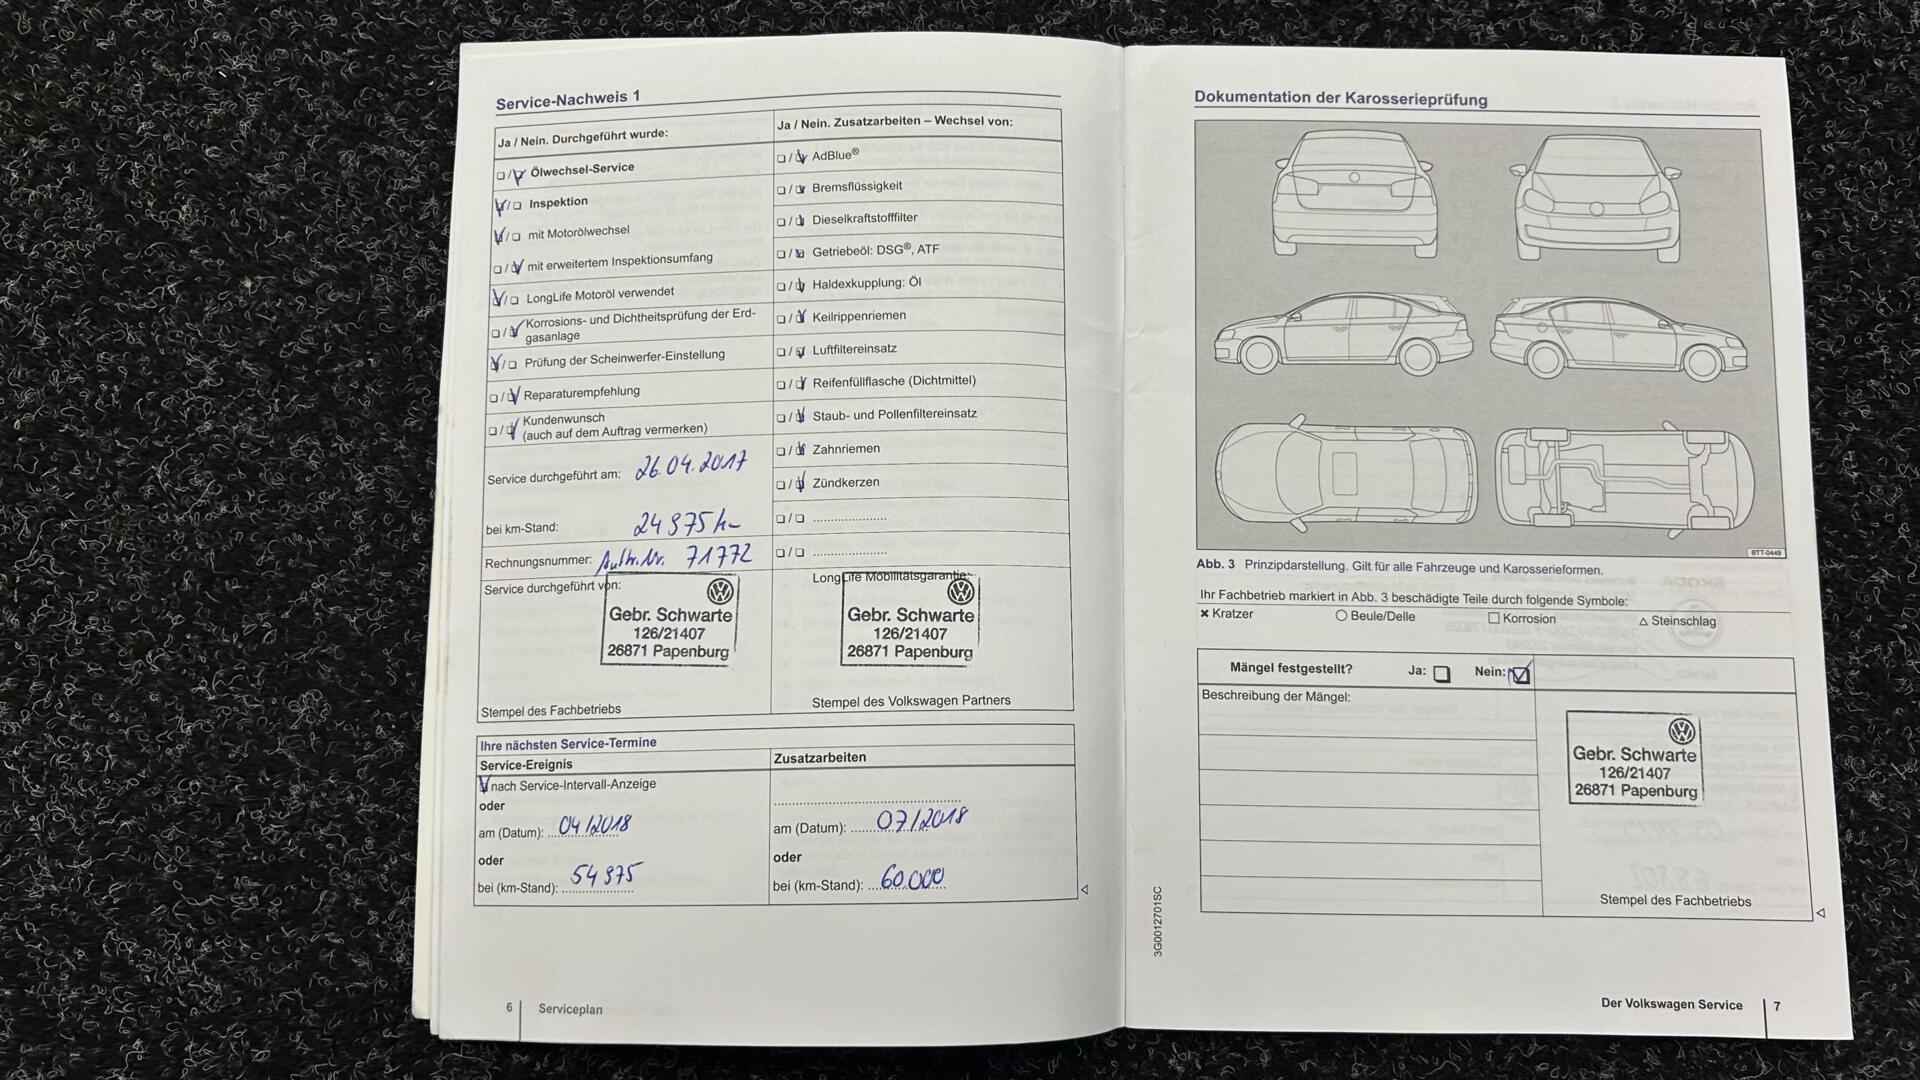 Service-Nachweis 1
Ja / Nein. Durchgeführt wurde:
/ Ölwechsel-Service
/ Inspektion
/ mit Motorölwechsel
/ mit erweitertem Inspektionsumfang
/ LongLife Motoröl verwendet
/ Korrosions- und Dichtheitsprüfung der Erd-
gasanlage
/ Prüfung der Scheinwerfer-Einstellung
/ Reparaturempfehlung
/ Kundenwunsch
(auch auf dem Auftrag vermerken)
Service durchgeführt am: 26.04.2017
bei km-Stand: 24975 km
Rechnungsnummer: Auftr.Nr. 71772
Service durchgeführt von:
Gebr. Schwarte
126/21407
26871 Papenburg
Stempel des Fachbetriebs
Ja / Nein. Zusatzarbeiten – Wechsel von:
/ AdBlue®
/ Bremsflüssigkeit
/ Dieselkraftstofffilter
/ Getriebeöl: DSG®, ATF
/ Haldexkupplung: Öl
/ Keilrippenriemen
/ Luftfiltereinsatz
/ Reifenfüllflasche (Dichtmittel)
/ Staub- und Pollenfiltereinsatz
/ Zahnriemen
/ Zündkerzen
/ ......................
/ ......................
LongLife Mobilitätsgarantie:
Gebr. Schwarte
126/21407
26871 Papenburg
Stempel des Volkswagen Partners
Ihre nächsten Service-Termine
Service-Ereignis
nach Service-Intervall-Anzeige
oder
am (Datum): 04/2018
oder
bei (km-Stand): 54975
Zusatzarbeiten
am (Datum): 07/2018
oder
bei (km-Stand): 60.000
6 Serviceplan
Dokumentation der Karosserieprüfung
BTT-0449
Abb. 3 Prinzipdarstellung. Gilt für alle Fahrzeuge und Karosserieformen.
Ihr Fachbetrieb markiert in Abb. 3 beschädigte Teile durch folgende Symbole:
✖ Kratzer ○ Beule/Delle □ Korrosion △ Steinschlag
Mängel festgestellt? Ja: Nein:
Beschreibung der Mängel:
Gebr. Schwarte
126/21407
26871 Papenburg
Stempel des Fachbetriebs
3G0012701SC
Der Volkswagen Service 7